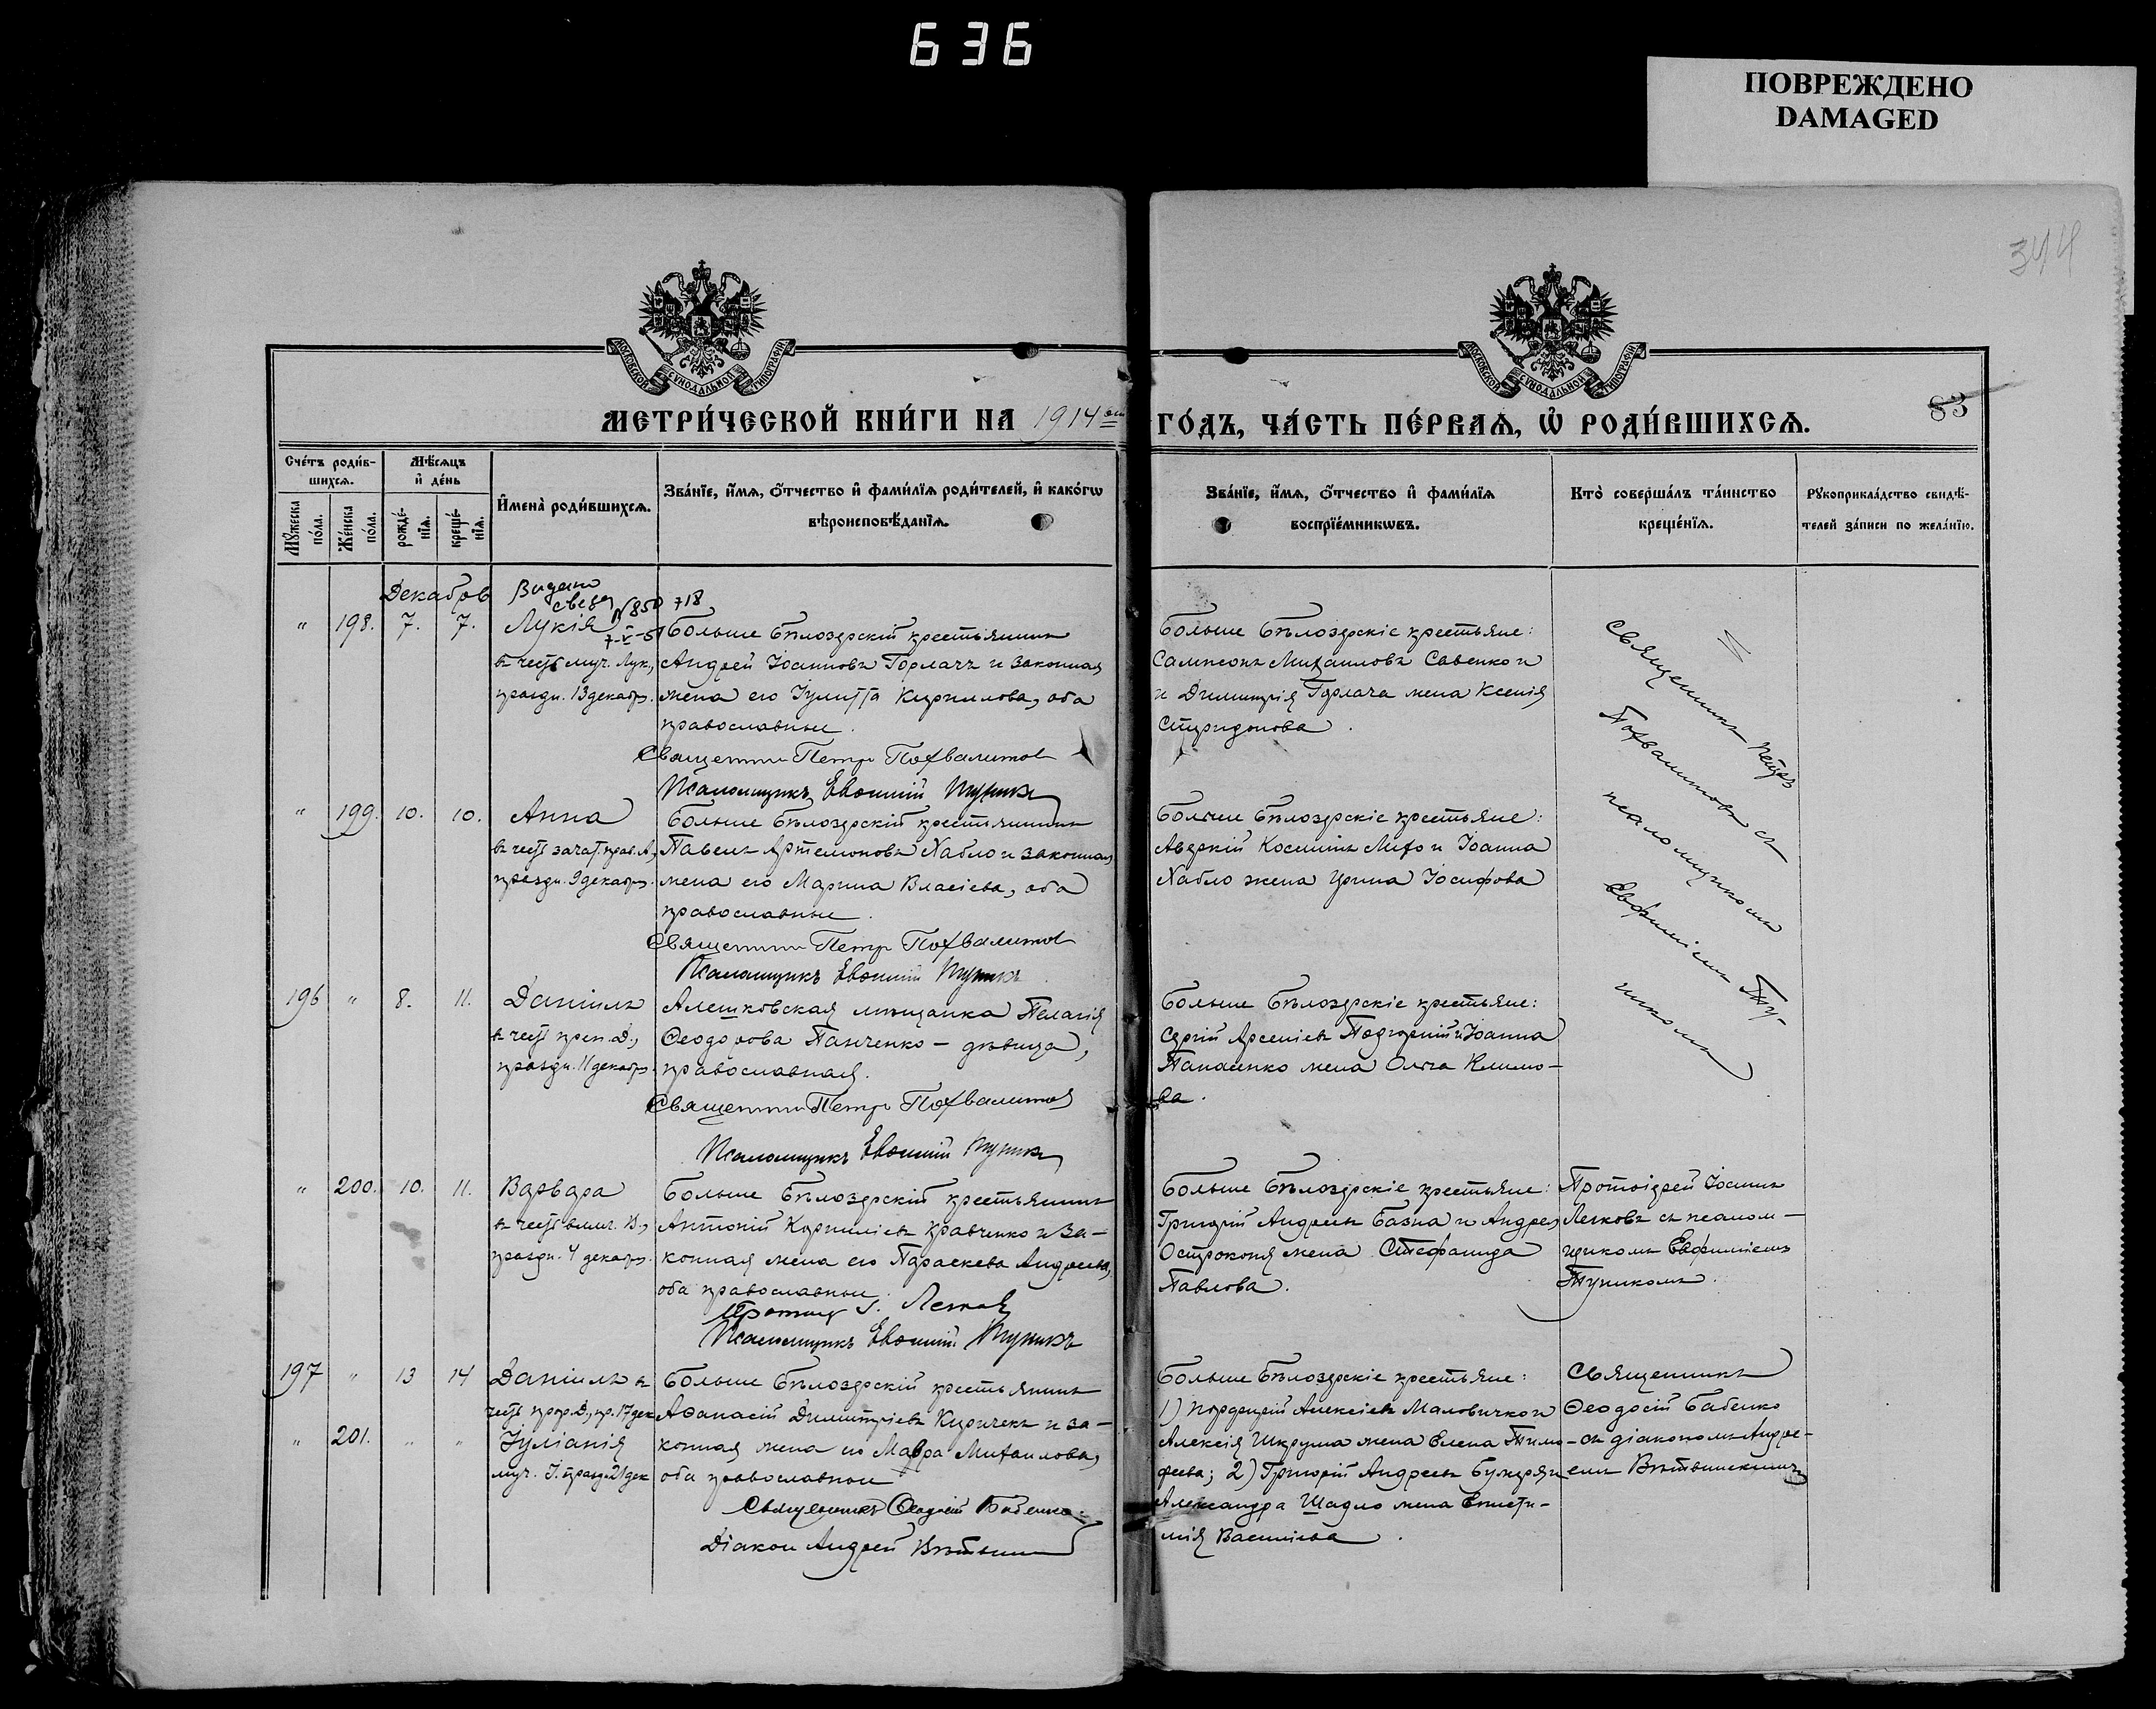 636
ПОВРЕЖДЕНО
DAMAGED
344
МОСКОВСКОЙ СѴНОДАЛЬНОЙ ТИПОГРАФІИ
МОСКОВСКОЙ СѴНОДАЛЬНОЙ ТИПОГРАФІИ
83
МЕТРИ́ЧЕСКОЙ КНИ́ГИ НА 1914 ГО́ДЪ, ЧА́СТЬ ПЕ́РВАѦ, Ѡ҆ РОДИ́ВШИХСѦ.
Сче́тъ роди́в-
шихсѧ.
Мѣ́сѧцъ
и҆ де́нь
Мꙋ́жеска по́ла.
Же́нска по́ла.
рожде́-
нїѧ.
креще́-
нїѧ.
И҆мена̀ роди́вшихсѧ.
Зва́нїе, и҆́мѧ, ѻ҆́тчество и҆ фами́лїѧ роди́телей, и҆ како́гѡ
вѣроисповѣ́данїѧ.
Зва́нїе, и҆́мѧ, ѻ҆́тчество и҆ фами́лїѧ
воспрїе́мникѡвъ.
Кто̀ соверша́лъ та́инство
креще́нїѧ.
Рꙋкоприкла́дство свидѣ́-
телей за́писи по жела́нїю.
Декабрь
Видано
718
„ 198. 7. 7. Лукія
въ честь муч. Лук.,
праздн. 13 декабр.
Больше Бѣлозерскій крестьянинъ
Андрей Іоанновъ Горлачъ и законная
жена его Іулитта Кириллова, оба
православные.
Священник Петр Похвалитов
Псаломщикъ Евфимій Тупикъ
Больше Бѣлозерскіе крестьяне:
Сампсонъ Михаиловъ Савенко и
и Димитрія Горлача жена Ксенія
Спиридонова.
Священникъ Петръ
Похвалитовъ съ
псаломщикомъ
Евфиміемъ Ту-
пикомъ
„ 199. 10. 10. Анна
въ честь зачат. прав. А.,
праздн. 9 декабр.
Больше Бѣлозерскій крестьянинъ
Павелъ Артемоновъ Хабло и законная
жена его Марина Власіева, оба
православные.
Священник Петр Похвалитов
Псаломщикъ Евфимій Тупикъ
Больше Бѣлозерскіе крестьяне:
Аверкій Косминъ Михо и Іоанна
Хабло жена Ирина Іосифова
196 „ 8. 11. Даніилъ
въ честь преп. Д.,
праздн. 11 декабр.
Алешковская мѣщанка Пелагія
Ѳеодорова Панченко – дѣвица,
православная.
Священник Петр Похвалитов
Псаломщикъ Евфимій Тупикъ
Больше Бѣлозерскіе крестьяне:
Сергій Арсеніевъ Подгорній и Іоанна
Панасенко жена Ольга Климо-
ва.
„ 200. 10. 11. Варвара
въ честь вмч. В.,
праздн. 4 декабр.
Больше Бѣлозерскій крестьянинъ
Антоній Корниліевъ Кравченко и за-
конная жена его Параскева Андреева,
оба православные.
Псаломщикъ Евфимій Тупикъ
Больше Бѣлозерскіе крестьяне:
Григорій Андреевъ Базна и Андрея
Остроконя жена Стефанида
Павлова.
Протоіерей Іоаннъ
Легковъ съ псалом-
щикомъ Евфиміемъ
Тупикомъ.
197 „ 13 14 Даніилъ въ
честь прор. Д., пр. 17 дек.
„ 201. „ „ Іуліанія
муч. І. празд. 21 дек.
Больше Бѣлозерскій крестьянинъ
Аѳанасій Димитріевъ Киричекъ и за-
конная жена его Мавра Михаилова,
оба православные
Священникъ Ѳеодосій Бабенко
Діакон Андрей
Больше Бѣлозерскіе крестьяне:
1) Порфирій Алексіевъ Маловичко и
Алексія Шкрума жена Елена Тимо-
феева; 2) Григорій Андреевъ и
Александра Шадло жена Еписти-
мія Василіева.
Священникъ
Ѳеодосій Бабенко
съ діакономъ Андре-
емъ